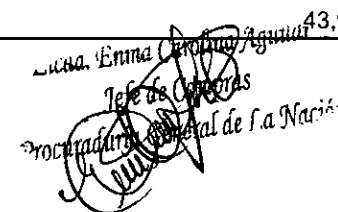 43,
Enma Carolina Aguilar
Jefe de Compras
Procuraduría General de La Nación